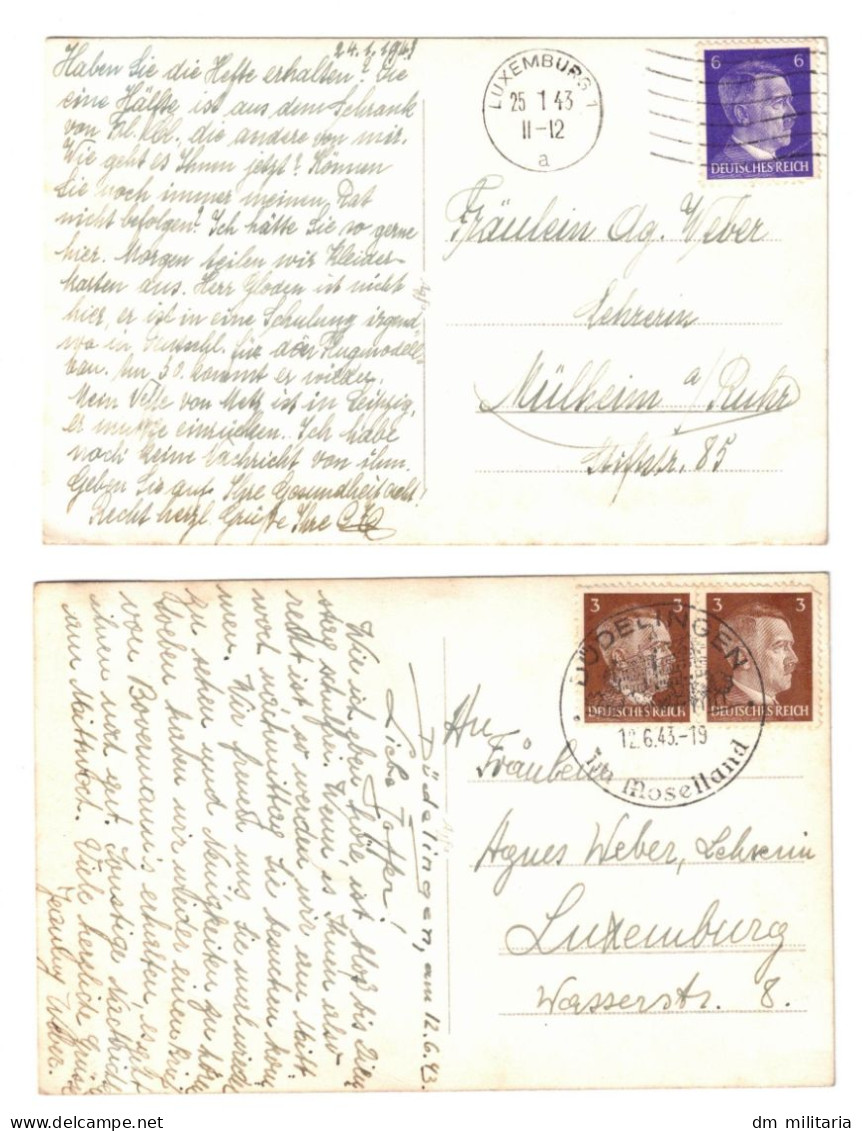 24.1.1943
Haben Sie die Hefte erhalten? Die
eine Hälfte ist aus dem Schrank
von Frl. Kbl. die andere von mir.
Wie geht es Ihnen jetzt? Können
Sie noch immer meinen Rat
nicht befolgen? Ich hätte Sie so gerne
hier. Morgen teilen wir Kleider-
karten aus. Herr Gloden ist nicht
hier, er ist in eine Schulung irgend
wo in Deutschl. für den Flugmodell-
bau. Am 30. kommt er wieder.
Mein Vetter von Metz ist in Leipzig,
er musste einrücken. Ich habe
noch keine Nachricht von ihm.
Geben Sie gut Ihre Gesundheit acht!
Recht herzl. Grüße Ihre
LUXEMBURG 1
25 1 43
11-12
a
6 6
DEUTSCHES REICH
Fräulein Ag. Weber
Lehrerin
Mülheim a/Ruhr
Stiftstr. 85
3 3
DEUTSCHES REICH
3 3
DEUTSCHES REICH
DÜDELINGEN
12.6.43.-19
Im Moselland
An
Fräulein
Agnes Weber, Lehrerin
Luxemburg
Wasserstr. 8.
Düdelingen, am 12.6.43.
Liebe
Wie ich eben höre, ist bis
schulfrei. Wenn es Ihnen also
recht ist so werden wir am Mitt
woch nachmittag Sie besuchen kom
men. Wir freuen uns Sie mal wieder
zu sehen und Neuigkeiten zu hören
haben wir wieder einen Brief
von Bovermann's erhalten, es geht
ihnen noch gut. Sonstige
am Mittwoch. Viele herzlich Grüße
Weber.
dm militaria